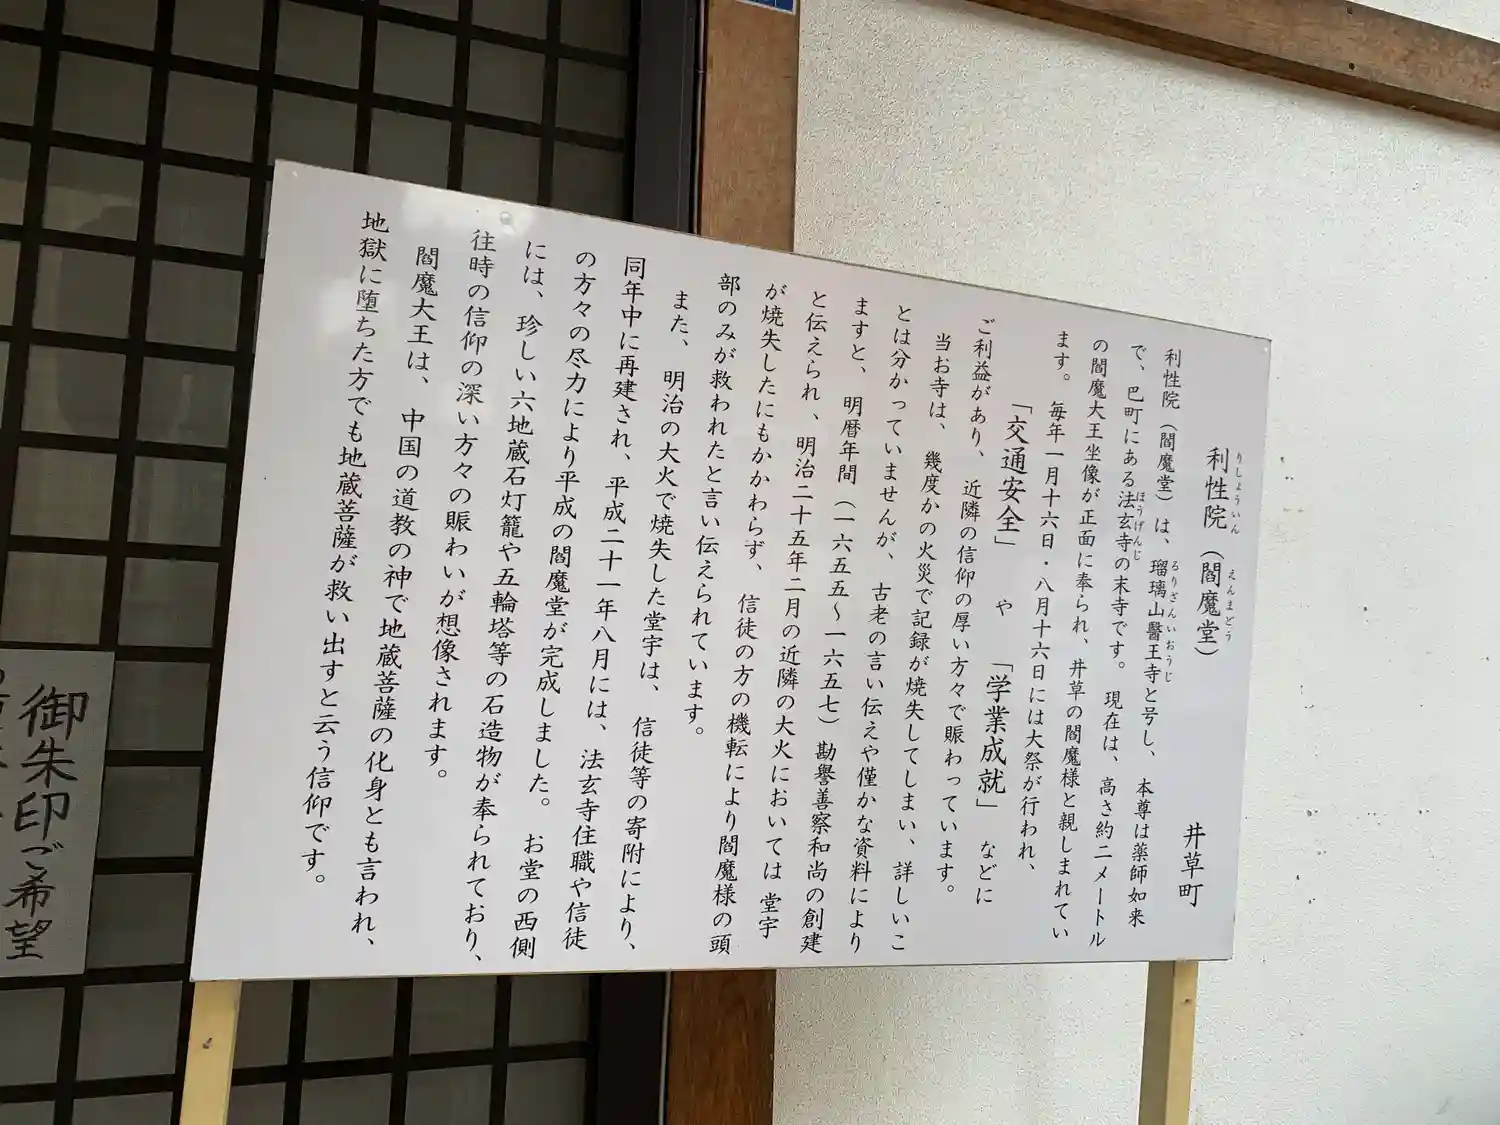 利性院（閻魔堂）　井草町
りしょういん　えんまどう
利性院（閻魔堂）は、瑠璃山醫王寺と号し、本尊は薬師如来
るりざんいおうじ
で、巴町にある法玄寺の末寺です。現在は、高さ約二メートル
ほうげんじ
の閻魔大王坐像が正面に奉られ、井草の閻魔様と親しまれてい
ます。毎年一月十六日・八月十六日には大祭が行われ、
「交通安全」や「学業成就」などに
ご利益があり、近隣の信仰の厚い方々で賑わっています。
当お寺は、幾度かの火災で記録が焼失してしまい、詳しいこ
とは分かっていませんが、古老の言い伝えや僅かな資料により
ますと、明暦年間（一六五五～一六五七）勘譽善察和尚の創建
と伝えられ、明治二十五年二月の近隣の大火においては堂宇
が焼失したにもかかわらず、信徒の方の機転により閻魔様の頭
部のみが救われたと言い伝えられています。
また、明治の大火で焼失した堂宇は、信徒等の寄附により、
同年中に再建され、平成二十一年八月には、法玄寺住職や信徒
の方々の尽力により平成の閻魔堂が完成しました。お堂の西側
には、珍しい六地蔵石灯籠や五輪塔等の石造物が奉られており、
往時の信仰の深い方々の賑わいが想像されます。
閻魔大王は、中国の道教の神で地蔵菩薩の化身とも言われ、
地獄に堕ちた方でも地蔵菩薩が救い出すと云う信仰です。
御朱印ご希望